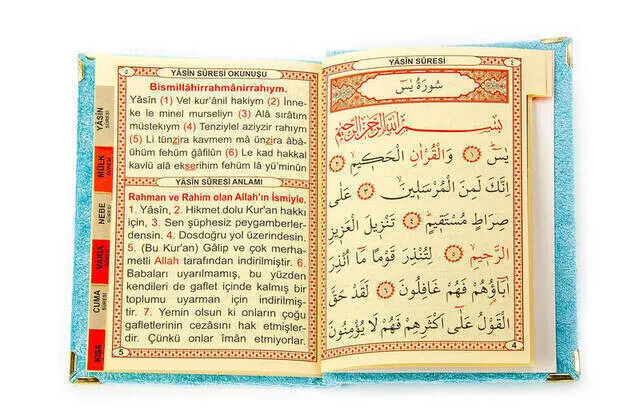 YÂSİN SÛRESİ
٤
سُورَةُ يٰسٓ
بِسْمِ اللّٰهِ الرَّحْمٰنِ الرَّحِيمِ
يٰسٓ ﴿١﴾ وَالْقُرْاٰنِ الْحَكِيمِ ﴿٢﴾
اِنَّكَ لَمِنَ الْمُرْسَلِينَ ﴿٣﴾ عَلٰى
صِرَاطٍ مُسْتَقِيمٍ ﴿٤﴾ تَنْزِيلَ الْعَزِيزِ
الرَّحِيمِ ﴿٥﴾ لِتُنْذِرَ قَوْمًا مَٓا اُنْذِرَ
اٰبَٓاؤُ۬هُمْ فَهُمْ غَافِلُونَ ﴿٦﴾ لَقَدْ حَقَّ
الْقَوْلُ عَلٰٓى اَكْثَرِهِمْ فَهُمْ لَا يُؤْمِنُونَ
4
٥
YÂSİN SÛRESİ OKUNUŞU
Bismillâhirrahmânirrahıym.
Yâsîn (1) Vel kur'ânil hakiym (2) İnne-
ke le minel murseliyn (3) Alâ sırâtım
müstekıym (4) Tenziylel aziyzir rahıym
(5) Li tünzira kavmem mâ ünzira âbâ-
ühüm fehüm ğâfilûn (6) Le kad hakkal
kavlü alâ ekserihim fehüm lâ yü'minûn
YÂSİN SÛRESİ ANLAMI
Rahman ve Rahim olan Allah'ın İsmiyle.
1. Yâsîn, 2. Hikmet dolu Kur'an hakkı
için, 3. Sen şüphesiz peygamberler-
densin. 4. Dosdoğru yol üzerindesin.
5. (Bu Kur'an) Gâlip ve çok merha-
metli Allah tarafından indirilmiştir. 6.
Babaları uyarılmamış, bu yüzden
kendileri de gaflet içinde kalmış bir
toplumu uyarman için indirilmiş-
tir. 7. Yemin olsun ki onların çoğu
gafletlerinin cezâsını hak etmişler-
dir. Çünkü onlar îman etmiyorlar.
5
YÂSİN
SÛRESİ
MÜLK
SÛRESİ
NEBE
SÛRESİ
VÂKIA
SÛRESİ
CUMA
SÛRESİ
KISA